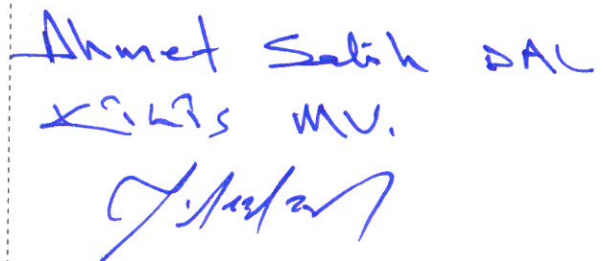 Ahmet Salih DAL
Kilis MV.